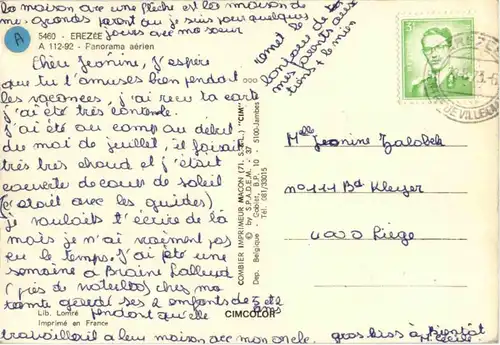 la maison avec une flèche est la maison de
mes grands parents où je suis pour quelques
jours avec ma soeur
A
5460 - EREZÉE
A 112-92 - Panorama aérien
Chère Jeanine, J'espère
que tu t'amuses bien pendant
les vacances, j'ai reçu ta carte
j'ai été très contente.
J'ai été au camp au début
du moi de juillet, il faisait
très très chaud et j'étais
couverte de coups de soleil
(c'était avec les guides)
je voulais t'écrire de là
mais je n'ai vraiment pas
eu le temps. J'ai été une
semaine à Braine l'alleud
(près de waterloo) chez ma
tante garder ses 2 enfants de 5 et 2
ans
pendant qu'elle
travaillait à leur maison avec mon oncle.
gros bisous à Bientôt
M. Cécile
Lib. Lomré
Imprimé en France
CIMCOLOR
COMBIER IMPRIMEUR MACON (71, S.-&-L.) "CIM"
© by S.P.A.D.E.M. - 37
Dép. Belgique - Goblet, B.P. 10 - 5100-Jambes
Tél. 081/33015
remet le
bonjour de
mes parents aux
tiens + le mien
Melle Jeanine Zalobek
n° 111 Bd Kleyer
4000 Liège
EREZEE